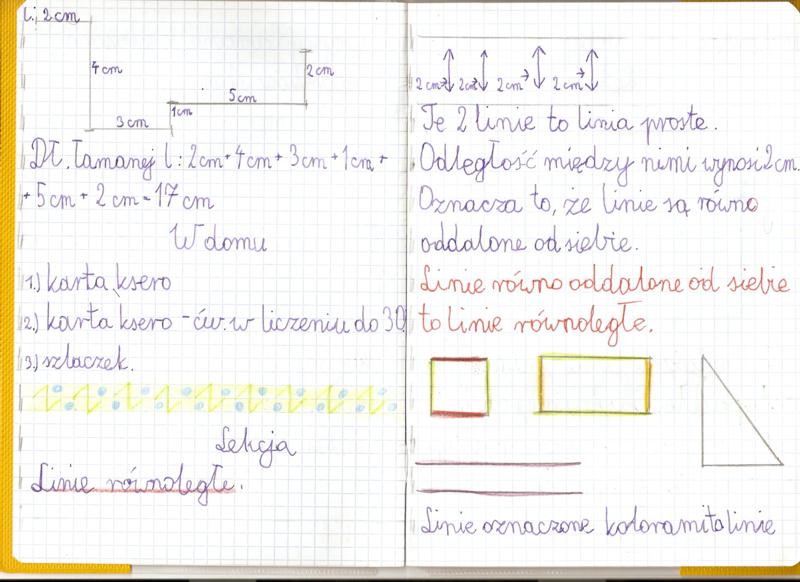 l: 2cm
4cm
3cm
1cm
5cm
2cm
Dł. łamanej l: 2cm + 4cm + 3cm + 1cm +
+ 5cm + 2 cm = 17 cm
W domu
1.) karta ksero
2.) karta ksero - ćw. w liczeniu do 30
3.) szlaczek.
Lekcja
Linie równoległe.
2cm 2cm 2cm 2cm
Te 2 linie to linia proste.
Odległość między nimi wynosi 2cm.
Oznacza to, że linie są równo
oddalone od siebie.
Linie równo oddalone od siebie
to linie równoległe.
Linie oznaczone kolorami to linie